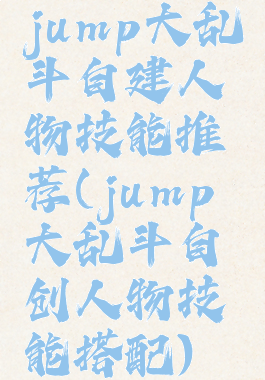 jump大乱
斗自建人
物技能推
荐(jump
大乱斗自
创人物技
能搭配)